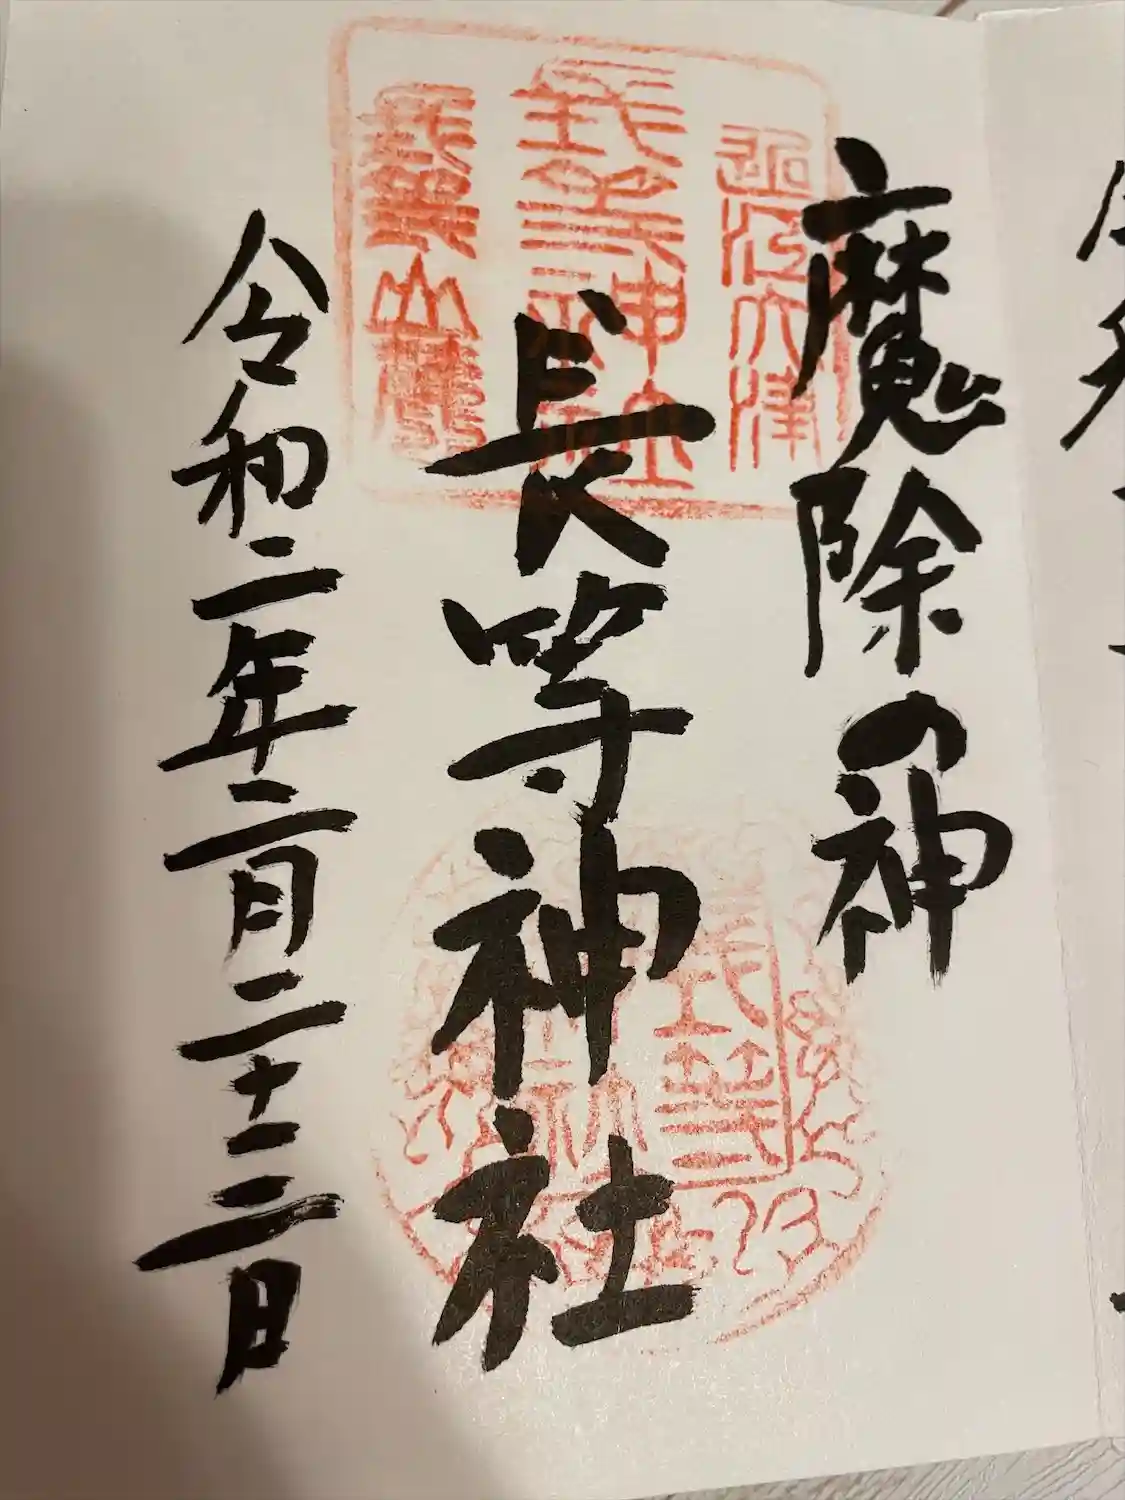 魔除の神
近江大津
長等神社
長等山麓
長等神社
令和二年二月二十三日